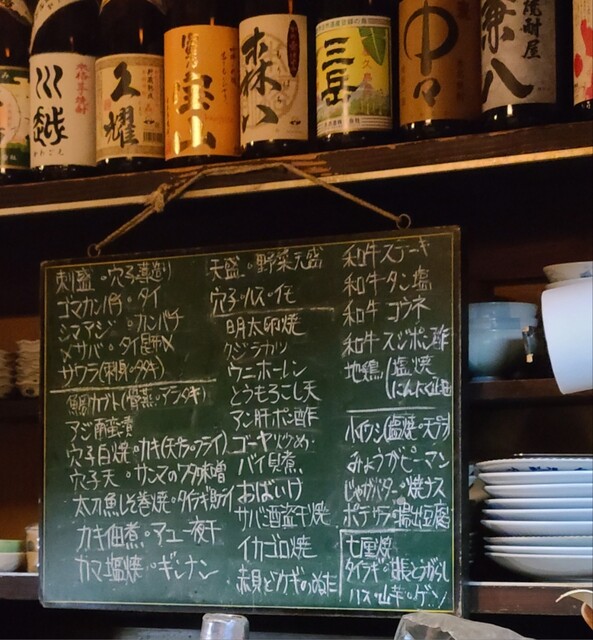 川越
かわごえ
本格芋焼酎
久耀
宝山
森八
三岳
中々
焼酎屋
兼八
刺盛・穴子薄造り
ゴマカンパチ・タイ
シマアジ・カンパチ
〆サバ・タイ昆布〆
サワラ(刺身・タタキ)
鯛カブト(骨蒸・アラダキ)
アジ南蛮漬
穴子白焼・カキ(天プラ・フライ)
穴子天・サンマのワタ味噌
太刀魚しそ巻焼・タイラギ
カキ佃煮・アユ一夜干
カマ塩焼・ギンナン
天盛・野菜天盛
穴子
明太卵焼
クジラカツ
ウニホーレン
とうもろこし天
アン肝ポン酢
ゴーヤ炒め
バイ貝煮
おばいけ
サバ
干焼
イカゴロ焼
赤貝とカギのぬた
和牛ステーキ
和牛タン塩
和牛コウネ
和牛スジポン酢
地鶏(塩焼
にんにく
小イワシ(塩焼・天プラ)
みょうがピーマン
じゃがバター・焼ナス
ポテサラ・揚出豆腐
七厘焼
タイラギ
とうがらし
ハス・山芋・ゲソ